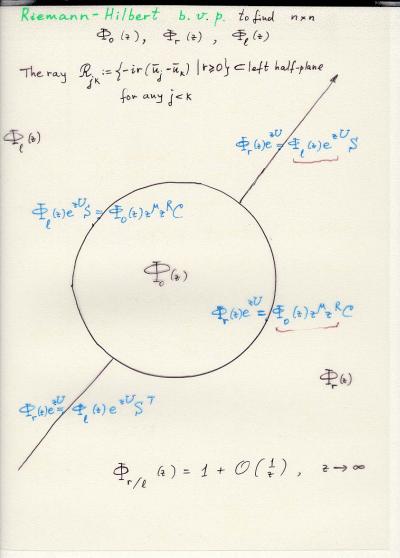 Riemann-Hilbert b.v.p. to find n×n
Φ₀(z), Φᵣ(z), Φₗ(z)
The ray R_jk := {-ir(ūⱼ-ūₖ) | r≥0} ⊂ left half-plane
for any j<k
Φₗ(z)
Φᵣ(z)e^{zU} = Φₗ(z)e^{zU}S
Φₗ(z)e^{zU}S = Φ₀(z)z^μ z^R C
Φ₀(z)
Φᵣ(z)e^{zU} = Φ₀(z)z^μ z^R C
Φᵣ(z)
Φᵣ(z)e^{zU} = Φₗ(z)e^{zU}S^T
Φ_{r/l}(z) = 1 + O(1/z), z→∞